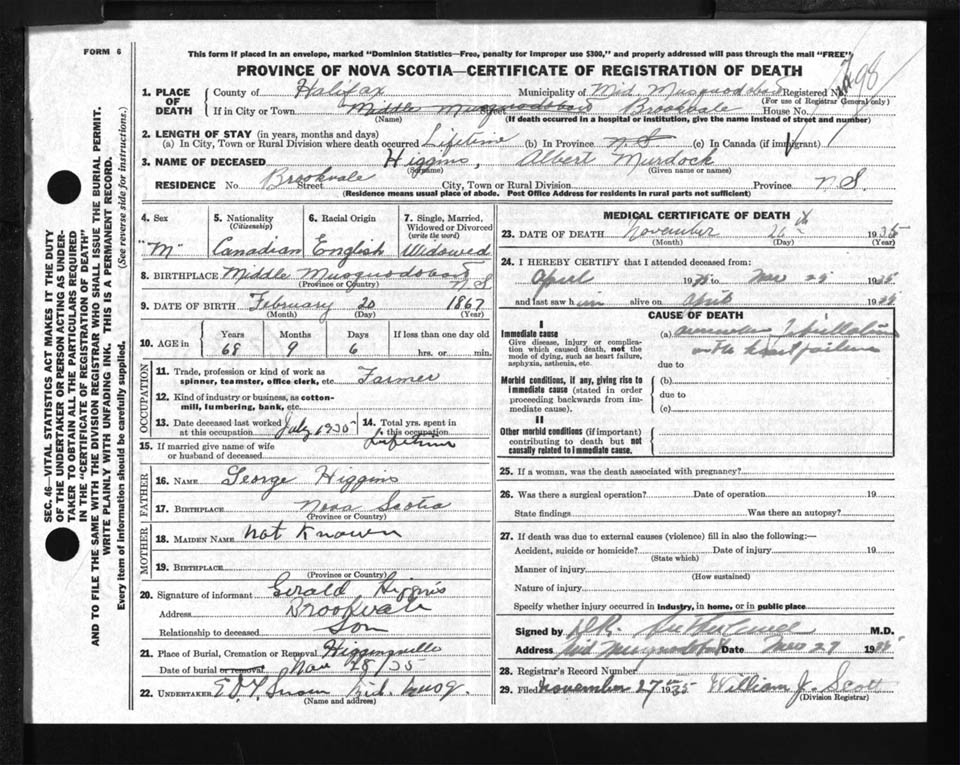 FORM 6
This form if placed in an envelope, marked "Dominion Statistics—Free, penalty for improper use $300," and properly addressed will pass through the mail "FREE"
PROVINCE OF NOVA SCOTIA—CERTIFICATE OF REGISTRATION OF DEATH
1. PLACE OF DEATH
County of Halifax Municipality of Mid. Musquodoboit Registered No. 298
(For use of Registrar General only)
If in City or Town Middle Musquodoboit Street Brookvale House No.
(Name) (If death occurred in a hospital or institution, give the name instead of street and number)
2. LENGTH OF STAY (in years, months and days)
(a) In City, Town or Rural Division where death occurred Lifetime (b) In Province N S (c) In Canada (if immigrant)
3. NAME OF DECEASED Higgins, Albert Murdock
(Surname) (Given name or names)
RESIDENCE No. Brookvale Street City, Town or Rural Division Province N S.
(Residence means usual place of abode. Post Office Address for residents in rural parts not sufficient)
SEC. 46—VITAL STATISTICS ACT MAKES IT THE DUTY
OF THE UNDERTAKER OR PERSON ACTING AS UNDER-
TAKER TO OBTAIN ALL THE PARTICULARS REQUIRED
IN THE "CERTIFICATE OF REGISTRATION OF DEATH"
AND TO FILE THE SAME WITH THE DIVISION REGISTRAR WHO SHALL ISSUE THE BURIAL PERMIT.
WRITE PLAINLY WITH UNFADING INK. THIS IS A PERMANENT RECORD.
Every item of information should be carefully supplied. (See reverse side for instructions.)
4. Sex "M"
5. Nationality (Citizenship) Canadian
6. Racial Origin English
7. Single, Married, Widowed or Divorced (write the word) Widowed
8. BIRTHPLACE Middle Musquodoboit N S
(Province or Country)
9. DATE OF BIRTH February 20 1867
(Month) (Day) (Year)
10. AGE in Years 68 Months 9 Days 6 If less than one day old hrs. or min.
OCCUPATION
11. Trade, profession or kind of work as spinner, teamster, office clerk, etc. Farmer
12. Kind of industry or business, as cotton-mill, lumbering, bank, etc.
13. Date deceased last worked at this occupation July 1935
14. Total yrs. spent in this occupation Lifetime
15. If married give name of wife or husband of deceased
FATHER
16. NAME George Higgins
17. BIRTHPLACE Nova Scotia
(Province or Country)
MOTHER
18. MAIDEN NAME not Known
19. BIRTHPLACE
(Province or Country)
20. Signature of informant Gerald Higgins
Address Brookvale
Relationship to deceased Son
21. Place of Burial, Cremation or Removal Higginsville
Date of burial or removal Nov 28/35
22. UNDERTAKER Mid. Musq.
(Name and address)
MEDICAL CERTIFICATE OF DEATH
23. DATE OF DEATH November 26th 1935
(Month) (Day) (Year)
24. I HEREBY CERTIFY that I attended deceased from:
April 1935 to Nov 25 1935
and last saw him alive on April 1935
CAUSE OF DEATH
I
Immediate cause
Give disease, injury or complication which caused death, not the mode of dying, such as heart failure, asphyxia, asthenia, etc.
(a) auricular fibrillation
heart failure
due to
Morbid conditions, if any, giving rise to immediate cause (stated in order proceeding backwards from immediate cause).
(b)
due to
(c)
II
Other morbid conditions (if important) contributing to death but not causally related to immediate cause.
25. If a woman, was the death associated with pregnancy?
26. Was there a surgical operation? Date of operation 19
State findings Was there an autopsy?
27. If death was due to external causes (violence) fill in also the following:—
Accident, suicide or homicide? Date of injury 19
(State which)
Manner of injury
(How sustained)
Nature of injury
Specify whether injury occurred in industry, in home, or in public place
Signed by M.D.
Address Mid Musquodoboit Date Nov 27 1935
28. Registrar's Record Number
29. Filed November 27th 1935 William J. Scott
(Division Registrar)